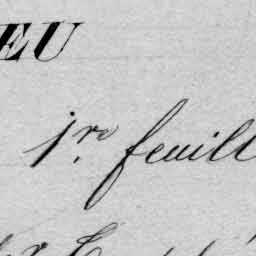 EU
1.re feuill